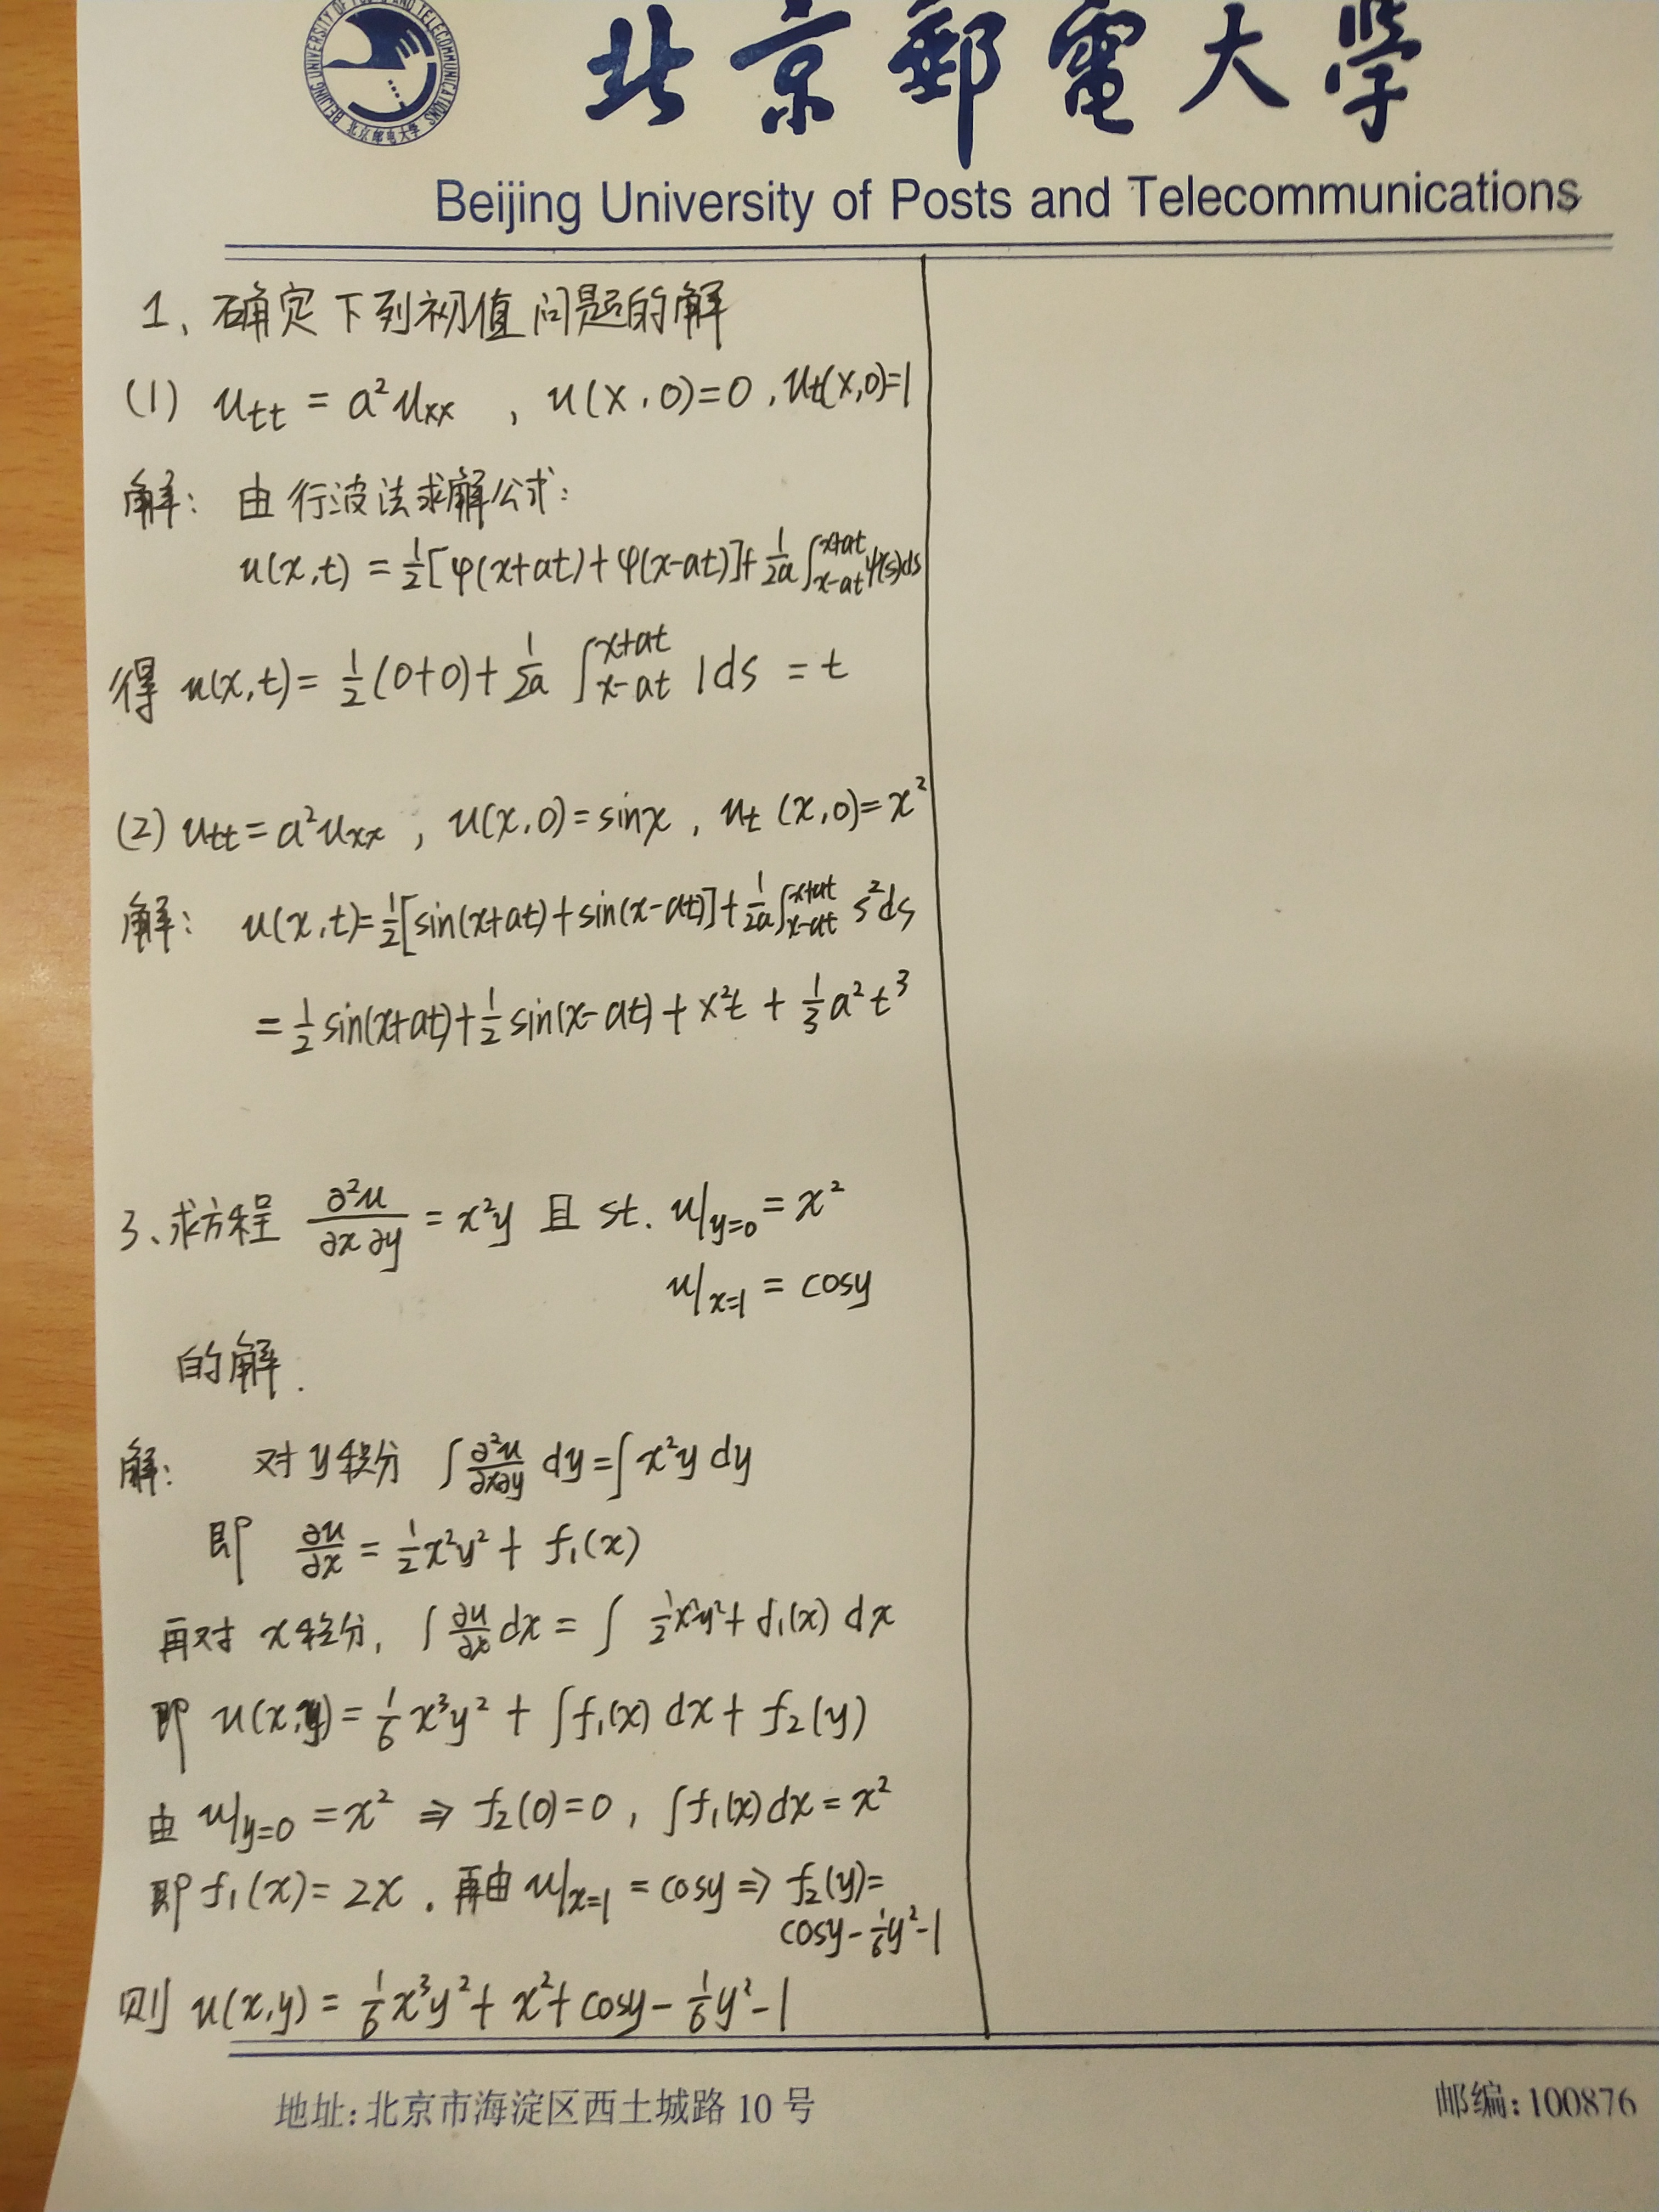 BEIJING UNIVERSITY OF POSTS AND TELECOMMUNICATIONS
北京邮电大学
北京郵電大学
Beijing University of Posts and Telecommunications
1、确定下列初值问题的解
(1) u_tt = a²u_xx , u(x,0)=0 , u_t(x,0)=1
解: 由行波法求解公式:
u(x,t) = 1/2[φ(x+at)+φ(x-at)]+ 1/2a ∫_{x-at}^{x+at} ψ(s)ds
得 u(x,t)= 1/2(0+0)+ 1/2a ∫_{x-at}^{x+at} 1ds = t
(2) u_tt = a²u_xx , u(x,0)=sinx , u_t (x,0)=x²
解: u(x,t)=1/2[sin(x+at)+sin(x-at)]+1/2a ∫_{x-at}^{x+at} s²ds
= 1/2 sin(x+at)+1/2 sin(x-at)+x²t + 1/3 a²t³
3、求方程 ∂²u/∂x∂y = x²y 且 st. u|_{y=0} = x²
u|_{x=1} = cosy
的解.
解: 对y积分 ∫ ∂²u/∂x∂y dy=∫ x²y dy
即 ∂u/∂x = 1/2 x²y² + f₁(x)
再对x积分, ∫ ∂u/∂x dx = ∫ 1/2 x²y² + f₁(x) dx
即 u(x,y)= 1/6 x³y² + ∫f₁(x) dx + f₂(y)
由 u|_{y=0} = x² ⇒ f₂(0)=0 , ∫f₁(x)dx = x²
即 f₁(x)= 2x . 再由 u|_{x=1} = cosy ⇒ f₂(y)=
cosy - 1/6 y² - 1
则 u(x,y) = 1/6 x³y² + x² + cosy - 1/6 y² - 1
地址:北京市海淀区西土城路 10 号
邮编:100876